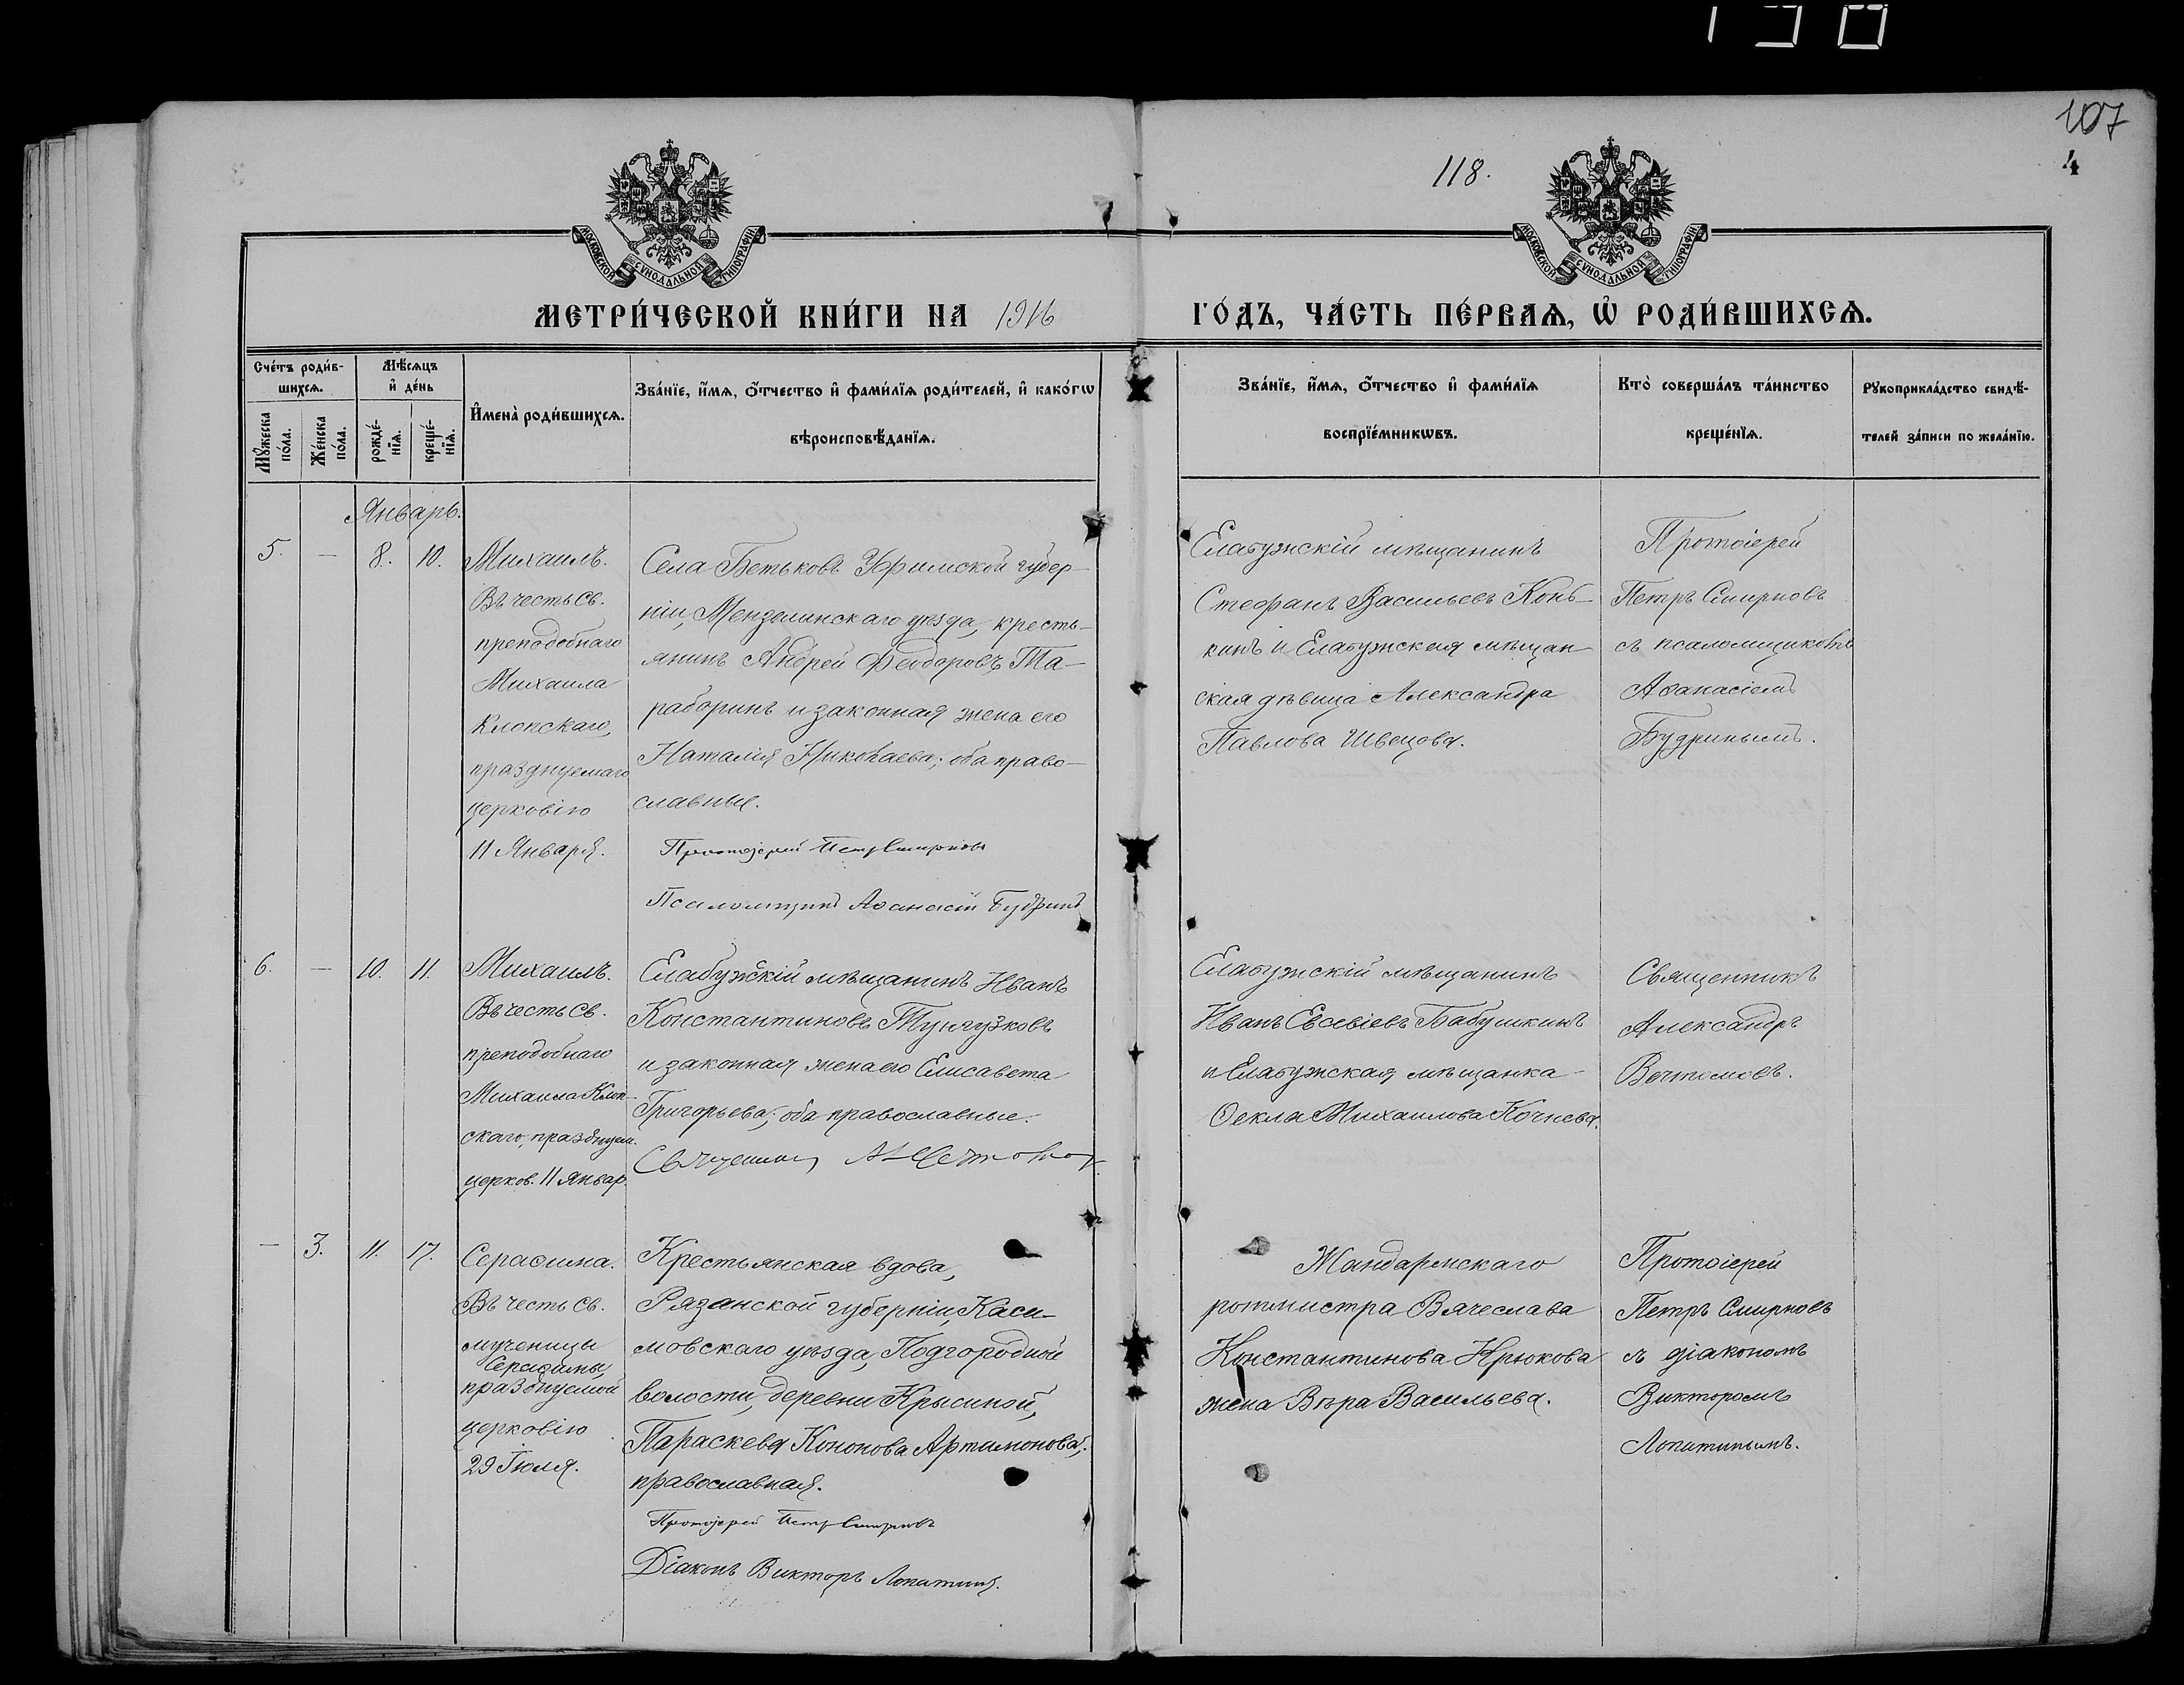 107
4
118.
МОСКОВСКОЙ СѴНОДАЛЬНОЙ ТИПОГРАФІИ
МОСКОВСКОЙ СѴНОДАЛЬНОЙ ТИПОГРАФІИ
МЕТРИ́ЧЕСКОЙ КНИ́ГИ НА 1916 ГО́ДЪ, ЧА́СТЬ ПЕ́РВАѦ, Ѡ҆ РОДИ́ВШИХСѦ.
Сче́тъ роди́в-
шихсѧ.
Мꙋ́жеска по́ла.
Же́нска по́ла.
Мѣ́сѧцъ
и҆ де́нь
рожде́-нїѧ.
креще́-нїѧ.
И҆мена̀ роди́вшихсѧ.
Зва́нїе, и҆́мѧ, ѻ҆́тчество и҆ фами́лїѧ роди́телей, и҆ како́гѡ
вѣроисповѣ́данїѧ.
Зва́нїе, и҆́мѧ, ѻ҆́тчество и҆ фами́лїѧ
воспрїе́мникѡвъ.
Кто̀ соверша́лъ та́инство
креще́нїѧ.
Рꙋкоприкла́дство свидѣ́-
телей за́писи по жела́нїю.
Январь.
5. — 8. 10.
Михаилъ.
Въ честь св.
преподобнаго
Михаила
Клопскаго,
празднуемаго
церковію
11 Января.
Села Бетьковъ Уфимской губер-
ніи, Мензелинскаго уѣзда, кресть-
янинъ Андрей Ѳеодоровъ Та-
раборинъ и законная жена его
Наталія Николаева; оба право-
славные.
Протоіерей Петръ Смирновъ
Псаломщикъ Аѳанасій Будринъ
Елабужскій мѣщанинъ
Стефанъ Васильевъ Конь-
кинъ и Елабужская мѣщан-
ская дѣвица Александра
Павлова Швецова.
Протоіерей
Петръ Смирновъ
съ псаломщикомъ
Аѳанасіемъ
Будринымъ.
6. — 10. 11.
Михаилъ.
Въ честь св.
преподобнаго
Михаила Клоп-
скаго, празднуем.
церков. 11 Январ.
Елабужскій мѣщанинъ Иванъ
Константиновъ Тунгузковъ
и законная жена его Елисавета
Григорьева; оба православные.
Священникъ
Елабужскій мѣщанинъ
Иванъ Евсевіевъ Бабушкинъ
и Елабужская мѣщанка
Ѳекла Михаилова Кочнева.
Священникъ
Александръ
Вечтомовъ.
— 3. 11. 17.
Серафима.
Въ честь св.
мученицы
Серафимы,
празднуемой
церковію
29 Іюля.
Крестьянская вдова,
Рязанской губерніи, Каси-
мовскаго уѣзда, Подгородной
волости, деревни Крысиной,
Параскева Кононова Артамонова;
православная.
Протоіерей Петръ Смирновъ
Діаконъ Викторъ Лопатинъ.
Жандармскаго
ротмистра Вячеслава
Константинова Крюкова
жена Вѣра Васильева.
Протоіерей
Петръ Смирновъ
съ діакономъ
Викторомъ
Лопатинымъ.